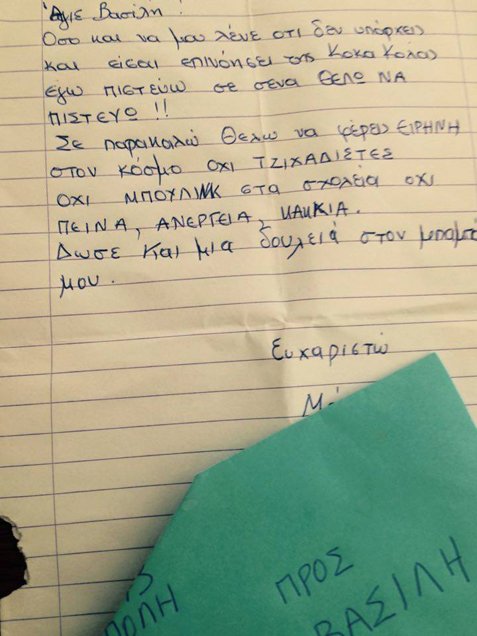 Άγιε Βασίλη!
Οσο και να μου λένε οτι δεν υπάρχεις
και είσαι επινόησει της Κοκα Κολας
εγω πιστεύω σε σενα θελω ΝΑ
ΠΙΣΤΕΥΩ !!
Σε παρακαλώ θελω να φέρεις ΕΙΡΗΝΗ
στον κόσμο οχι ΤΖΙΧΑΔΙΣΤΕΣ
οχι ΜΠΟΥΛΙΝΚ στα σχολεία οχι
ΠΕΙΝΑ, ΑΝΕΡΓΕΙΑ, ΚΑΚΚΙΑ.
Δωσε και μια δουλειά στον μπαμπά
μου.
Ευχαριστώ
ΠΡΟΣ
ΒΑΣΙΛΗ